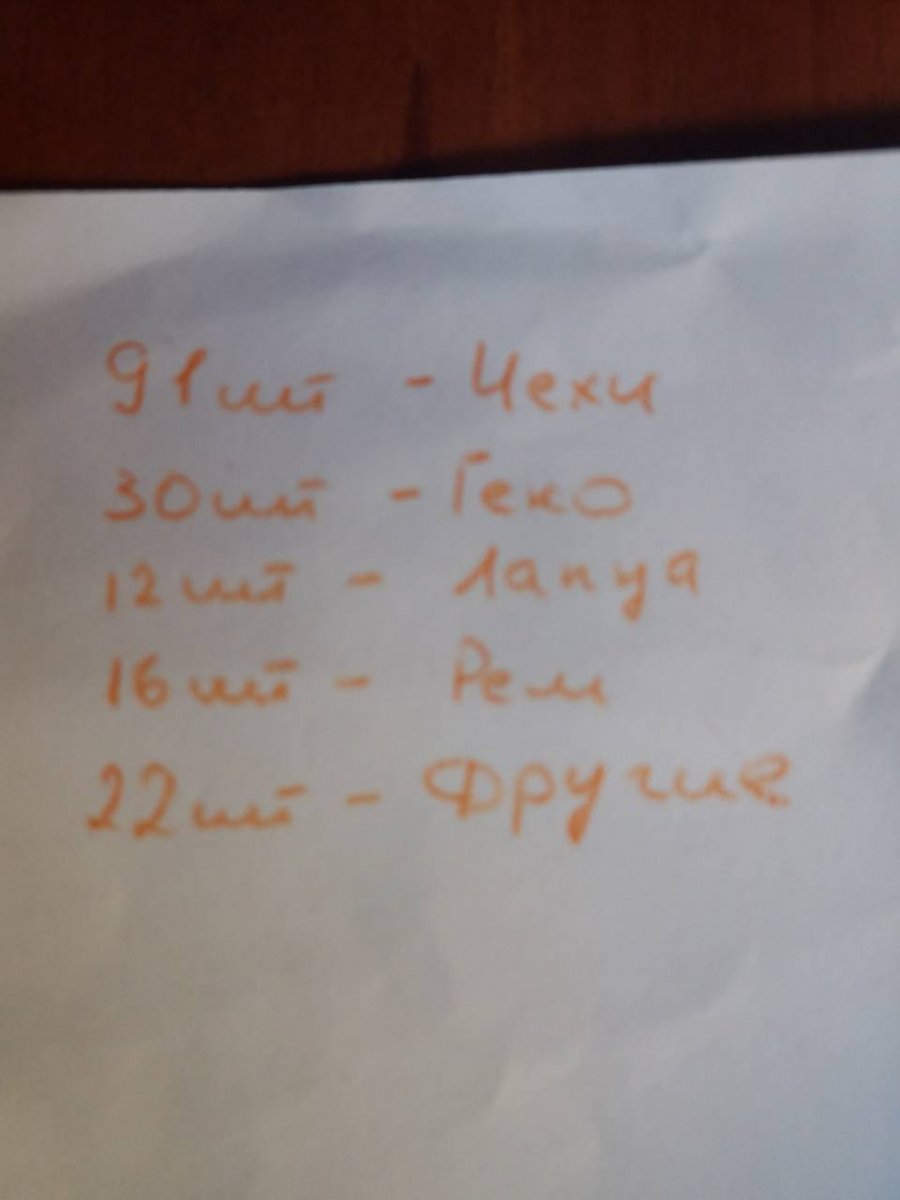 91шт - Чехи
30шт - Геко
12шт - Лапуа
16шт - Рем
22шт - Другие